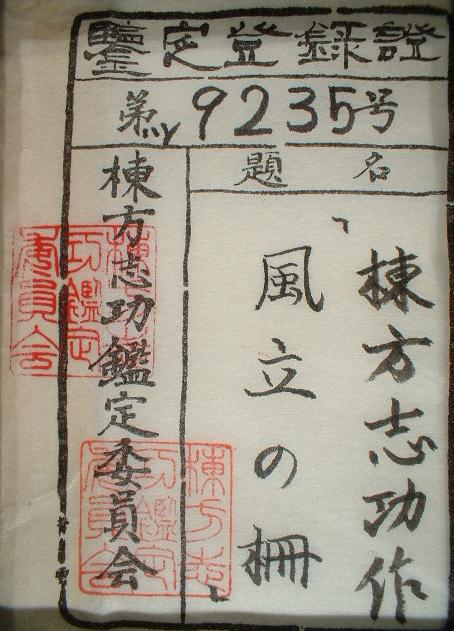 鑒定登録證
第9235号
題名
「棟方志功作
風立の柵」
棟方志功鑑定委員会
棟方志功鑑定委員会
棟方志功鑑定委員会